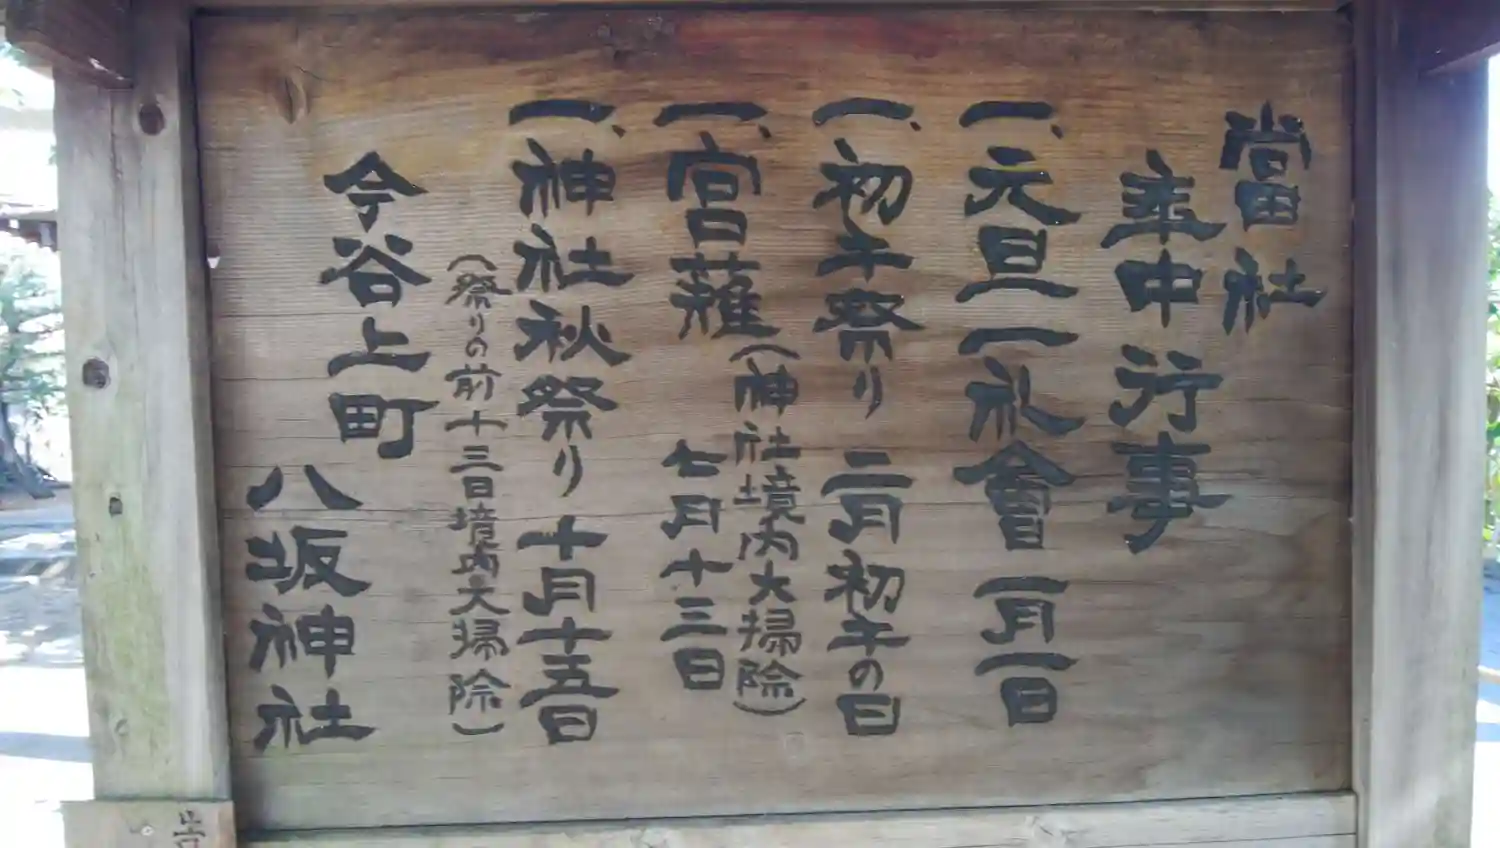 當社
年中行事
一、元旦一礼會 一月一日
一、初午祭り 二月初午の日
一、宮薙(神社境内大掃除)
七月十三日
一、神社秋祭り 十月十五日
(祭りの前十三日境内大掃除)
今谷上町
八坂神社